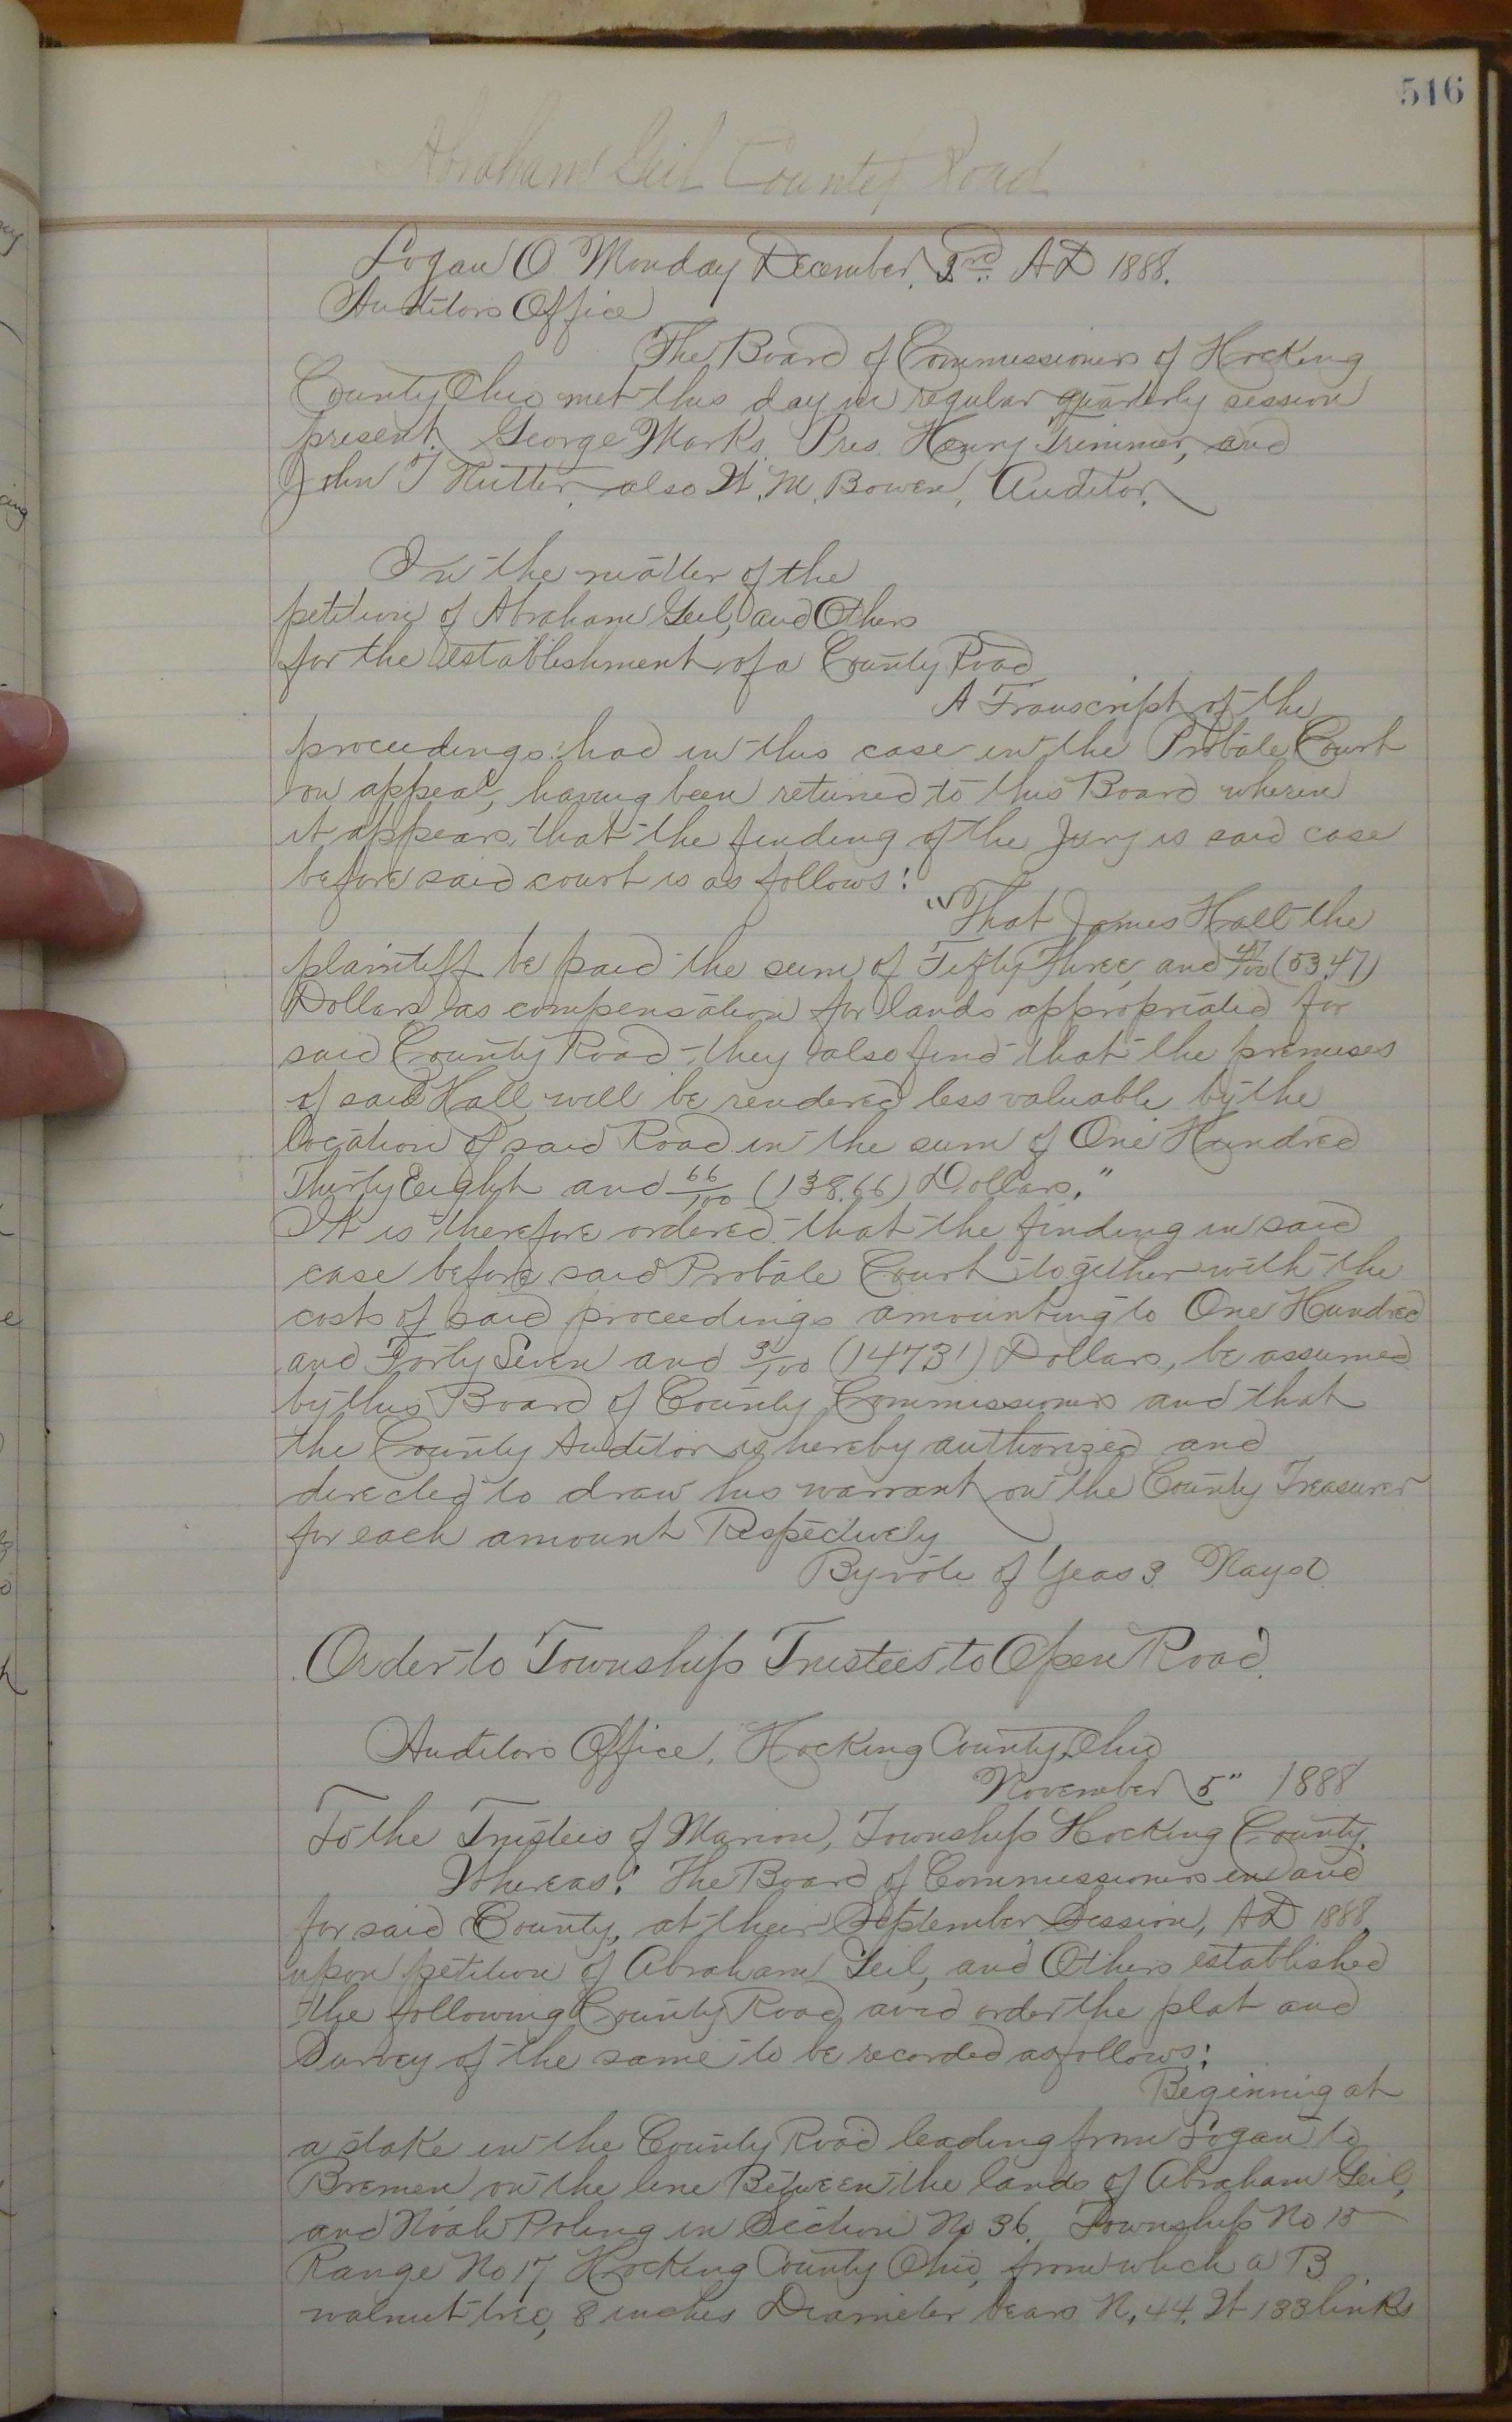 516
Abraham Geil County Road
Logan O. Monday December, 3rd. AD 1888.
Auditors Office
The Board of Commissioners of Hocking
County Ohio met this day in regular quarterly session
present. George Marks, Pres. Henry Trimmer, and
John T Nutter, also W. M. Bowen, Auditor.
In the matter of the
petition of Abraham Geil, and Others
for the establishment of a County Road
A Transcript of the
proceedings had in this case in the Probate Court
on appeal, having been returned to this Board wherein
it appears, that the finding of the Jury is said case
before said court is as follows:
"That James Hall the
plaintiff be paid the sum of Fifty Three, and 47/100 (53.47)
Dollars as compensation for lands appropriated for
said County Road - they also find that the premises
of said Hall will be rendered less valuable by the
location of said Road in the sum of One Hundred
Thirty Eight and 66/100 (138.66) Dollars."
It is therefore ordered that the finding in said
case before said Probate Court together with the
costs of said proceedings amounting to One Hundred
and Forty Seven and 31/100 (14731) Dollars, be assumed
by this Board of County Commissioners and that
the County Auditor is hereby authorized and
directed to draw his warrant on the County Treasurer
for each amount Respectively
By vote of Yeas 3. Nays 0.
Order to Township Trustees to Open Road.
Auditors Office, Hocking County, Ohio
November 5" 1888
To the Trustees of Marion, Township Hocking County.
Whereas: The Board of Commissioners in and
for said County, at their September Session, AD 1888,
upon petition of Abraham Geil, and Others established
the following County Road, and order the plat and
Survey of the same to be recorded as follows:
Beginning at
a stake in the County Road leading from Logan to
Bremen on the line Between the lands of Abraham Geil,
and Noah Poling in Section No 36. Township No 15
Range No 17 Hocking County Ohio, from which a B.
walnut tree, 8 inches Diameter bears N. 44. W 133 links